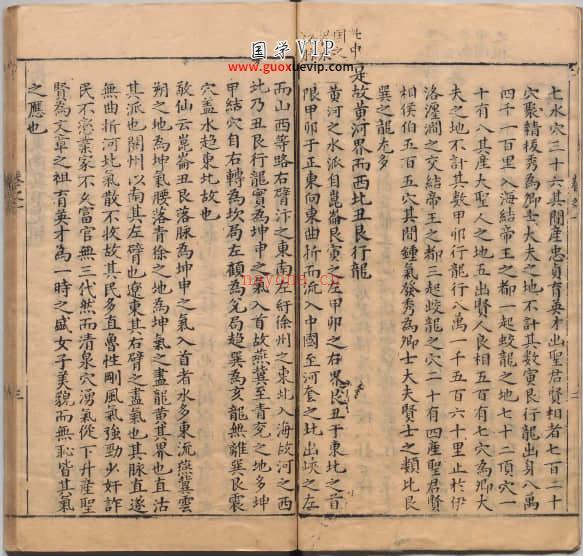 国学VIP
www.guoxuevip.com
七水穴三十六其間產忠貞育英才出聖君賢相者七百二十
穴聚精拔秀為卿士大夫之地不計其數寅艮行龍出身八萬
四千一百里入海結帝王之都一起蛟龍之地七十二頂穴一
十有八其產大聖人之地五出賢人良相五百有七穴為卿大
夫之地不計其數甲卯行龍行八萬一千五百六十里止於伊
洛瀍澗之交結帝王之都三起蛟龍之穴二十有四產聖君賢
相侯伯五百五十其間鍾氣發秀為卿士大夫賢士之類比艮
巽之龍尤多
是故黃河界而西北丑艮行龍
黃河之水派自崑崙艮寅之左甲卯之右界艮丑于東北之首
限甲卯于正東向東曲折而流入中國至河套之北出峽之左
而山西等路右臂汴之東南左紆徐州之東北入海故河之西
北乃丑艮行龍實為坤申之氣入首故燕冀至青兗之地多坤
甲結穴自右轉為坎局左顧為兌局趨巽為亥龍無離巽艮震
穴蓋水趨東北故也
敖仙云崑崙丑艮落脉為坤申之氣入首者水多東流燕冀雲
朔之地為坤氣腰落青徐之地為坤氣之盡龍黃其界也直沽
其派也蘭州以南其左臂也遼東其右臂之盡氣也其脉直遂
無曲折河北氣散不收故其民多直魯性剛風氣強勁少奸詐
民不戀業家不久富官無三代然而清泉穴湧氣從下升產聖
賢為文章之祖育英才為一時之盛女子美貌而無恥皆其氣
之應也
三